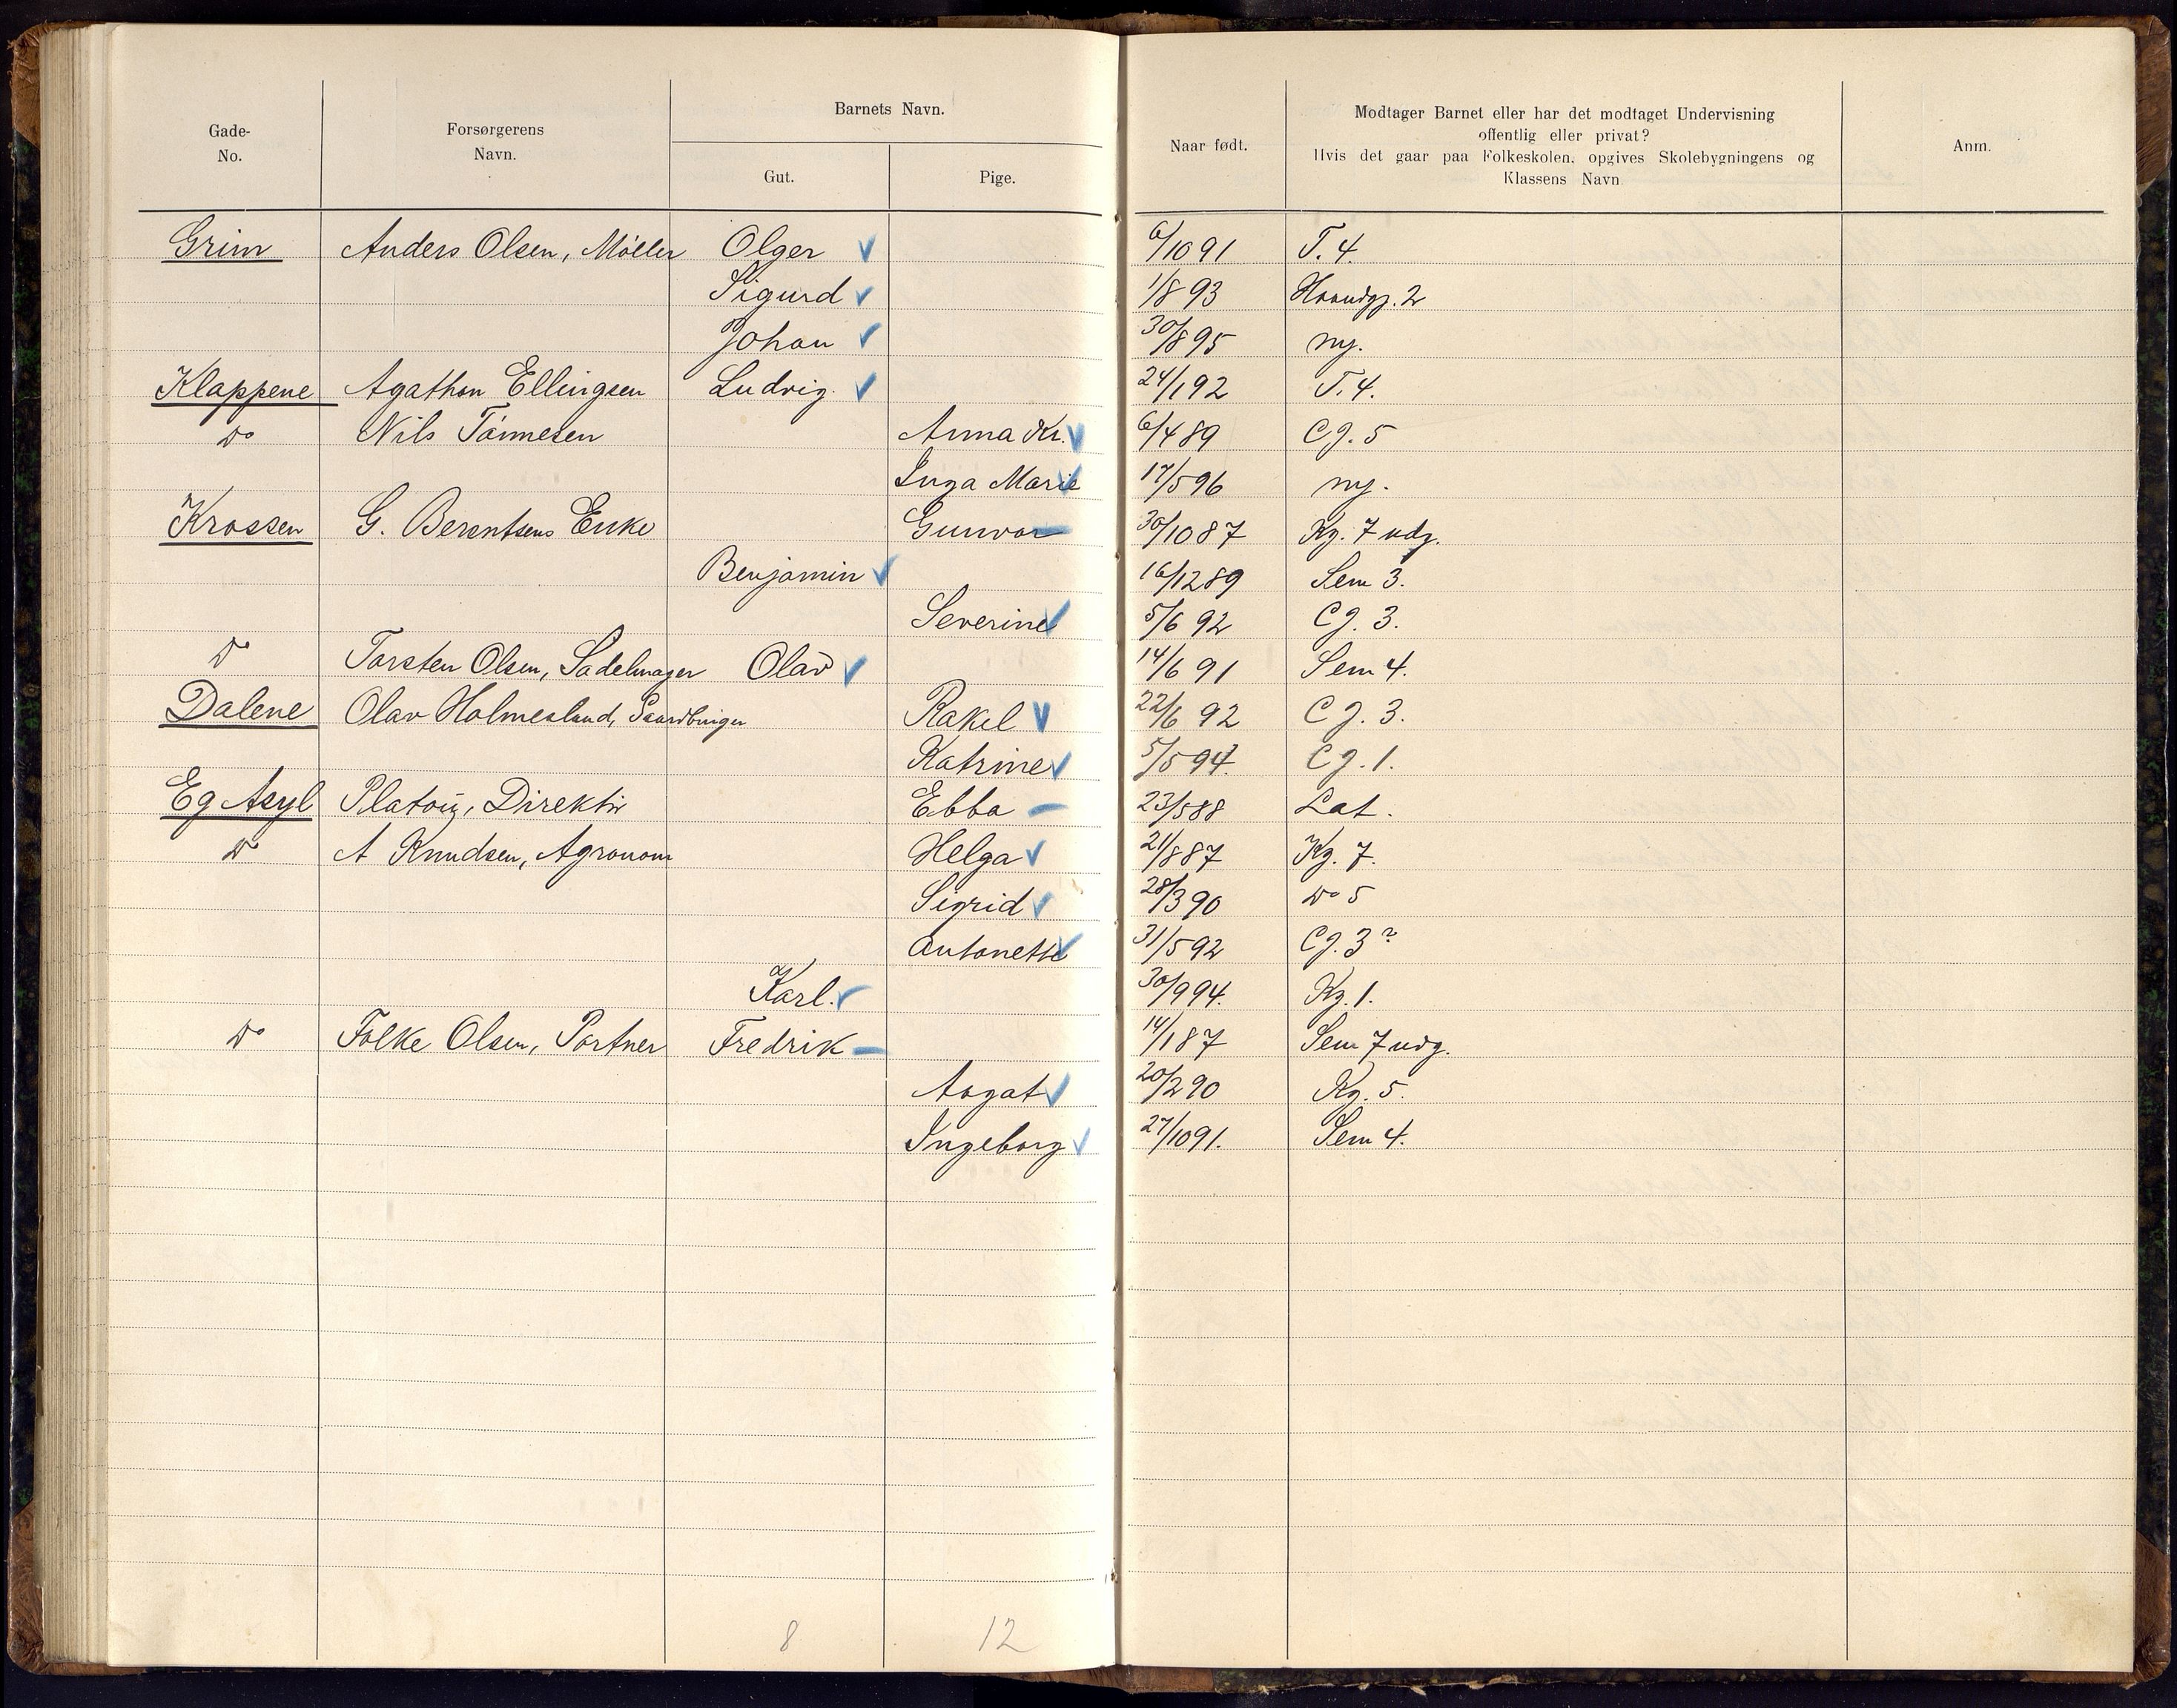 Gade-
No.
Forsørgerens
Navn.
Barnets Navn.
Gut.
Pige.
Naar født.
Modtager Barnet eller har det modtaget Undervisning
offentlig eller privat?
Hvis det gaar paa Folkeskolen, opgives Skolebygningens og
Klassens Navn
Anm.
Grim Anders Olsen, Möller Olger 6/10 91 T. 4.
Sigurd 1/8 93 2
Johan 30/8 95 ny.
Klappene Agathon Ellingsen Ludvig. 24/1 92 T. 4.
Do Nils Tönnesen Anna Kr. 6/4 89 Cg. 5
Inga Marie 17/5 96 ny.
Krossen G. Berentsens Enke Gunvor 30/10 87 Kg. 7 udg.
Benjamin 16/12 89 Sem 3.
Severine 5/6 92 Cg. 3.
Do Torsten Olsen, Sadelmager Olav 14/6 91 Sem 4.
Dalene Olav Holmeslund, Rakel 22/6 92 Cg. 3.
Katrine 5/5 94. Cg. 1.
Eg Asyl Platou, Direktör Ebba 23/5 88 Lat.
Do A Knudsen, Agronom Helga 21/8 87 Kg. 7.
Sigrid 28/3 90 Do 5
Antonette 31/5 92 Cg. 3?
Karl. 30/9 94. Kg. 1.
Do Folke Olsen, Portner Fredrik 14/1 87 Sem 7 udg.
Aagat 20/2 90 Kg. 5.
Ingeborg 27/10 91. Sem 4.
8 12